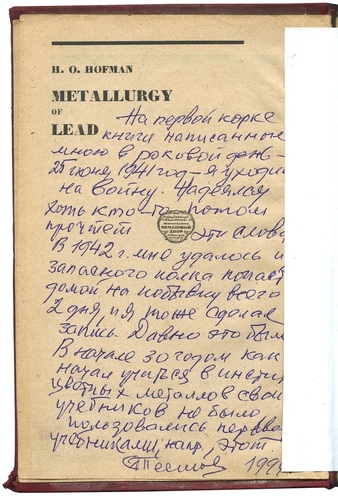 H. O. HOFMAN
METALLURGY
OF
LEAD
На первой корке
книги написанное
мною в роковой день –
25 июня, 1941 год – я уходи
на войну. Надеялся
хоть кто-то потом
прочтет эти слова
В 1942 г. мне удалось и
запасного полка попасть
домой на побывку всего
2 дня, и я тоже сделал
запись. Давно это было
В начале 30 годов как
начал учиться в инстит
цветных металлов свои
учебников не было
пользовались перева
учебниками, напр, этот
199